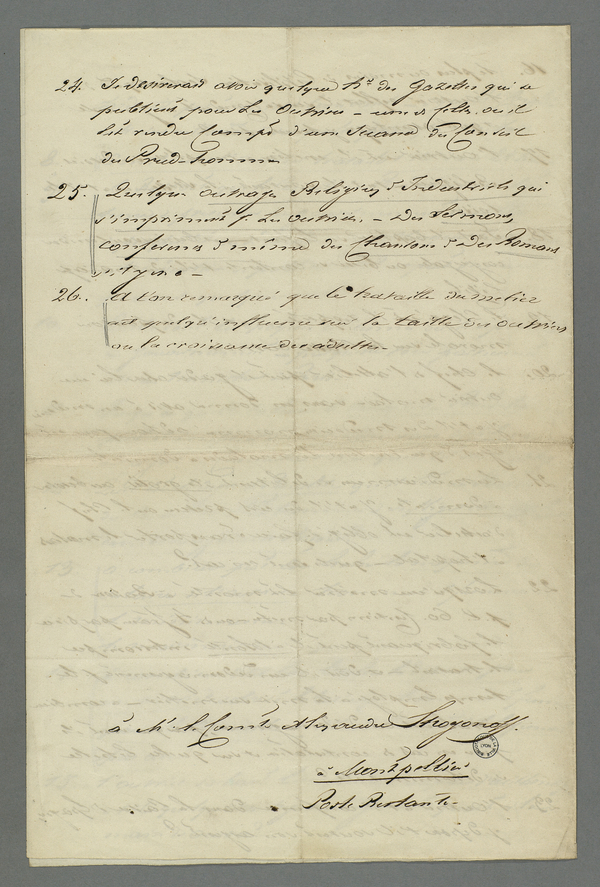 24. Je désirerais avoir quelque Nos des Gazettes qui se
publient pour les Ouvriers – une de celles ou il
est rendu Compte d'une Séance du Conseil
des Prud-homme
25. Quelque ouvrages Religieux & Industriels qui
s'impriment p. les Ouvriers. – Des Sermons,
conferences & même des Chansons & des Romans
26. A t'on remarqué que le travaille du métier
ait quelqu'influence sur la taille des ouvriers
ou la croissance des adultes.
à Mr le Comte Alexandre Stroganoff.
à Montpellier
Poste Restante